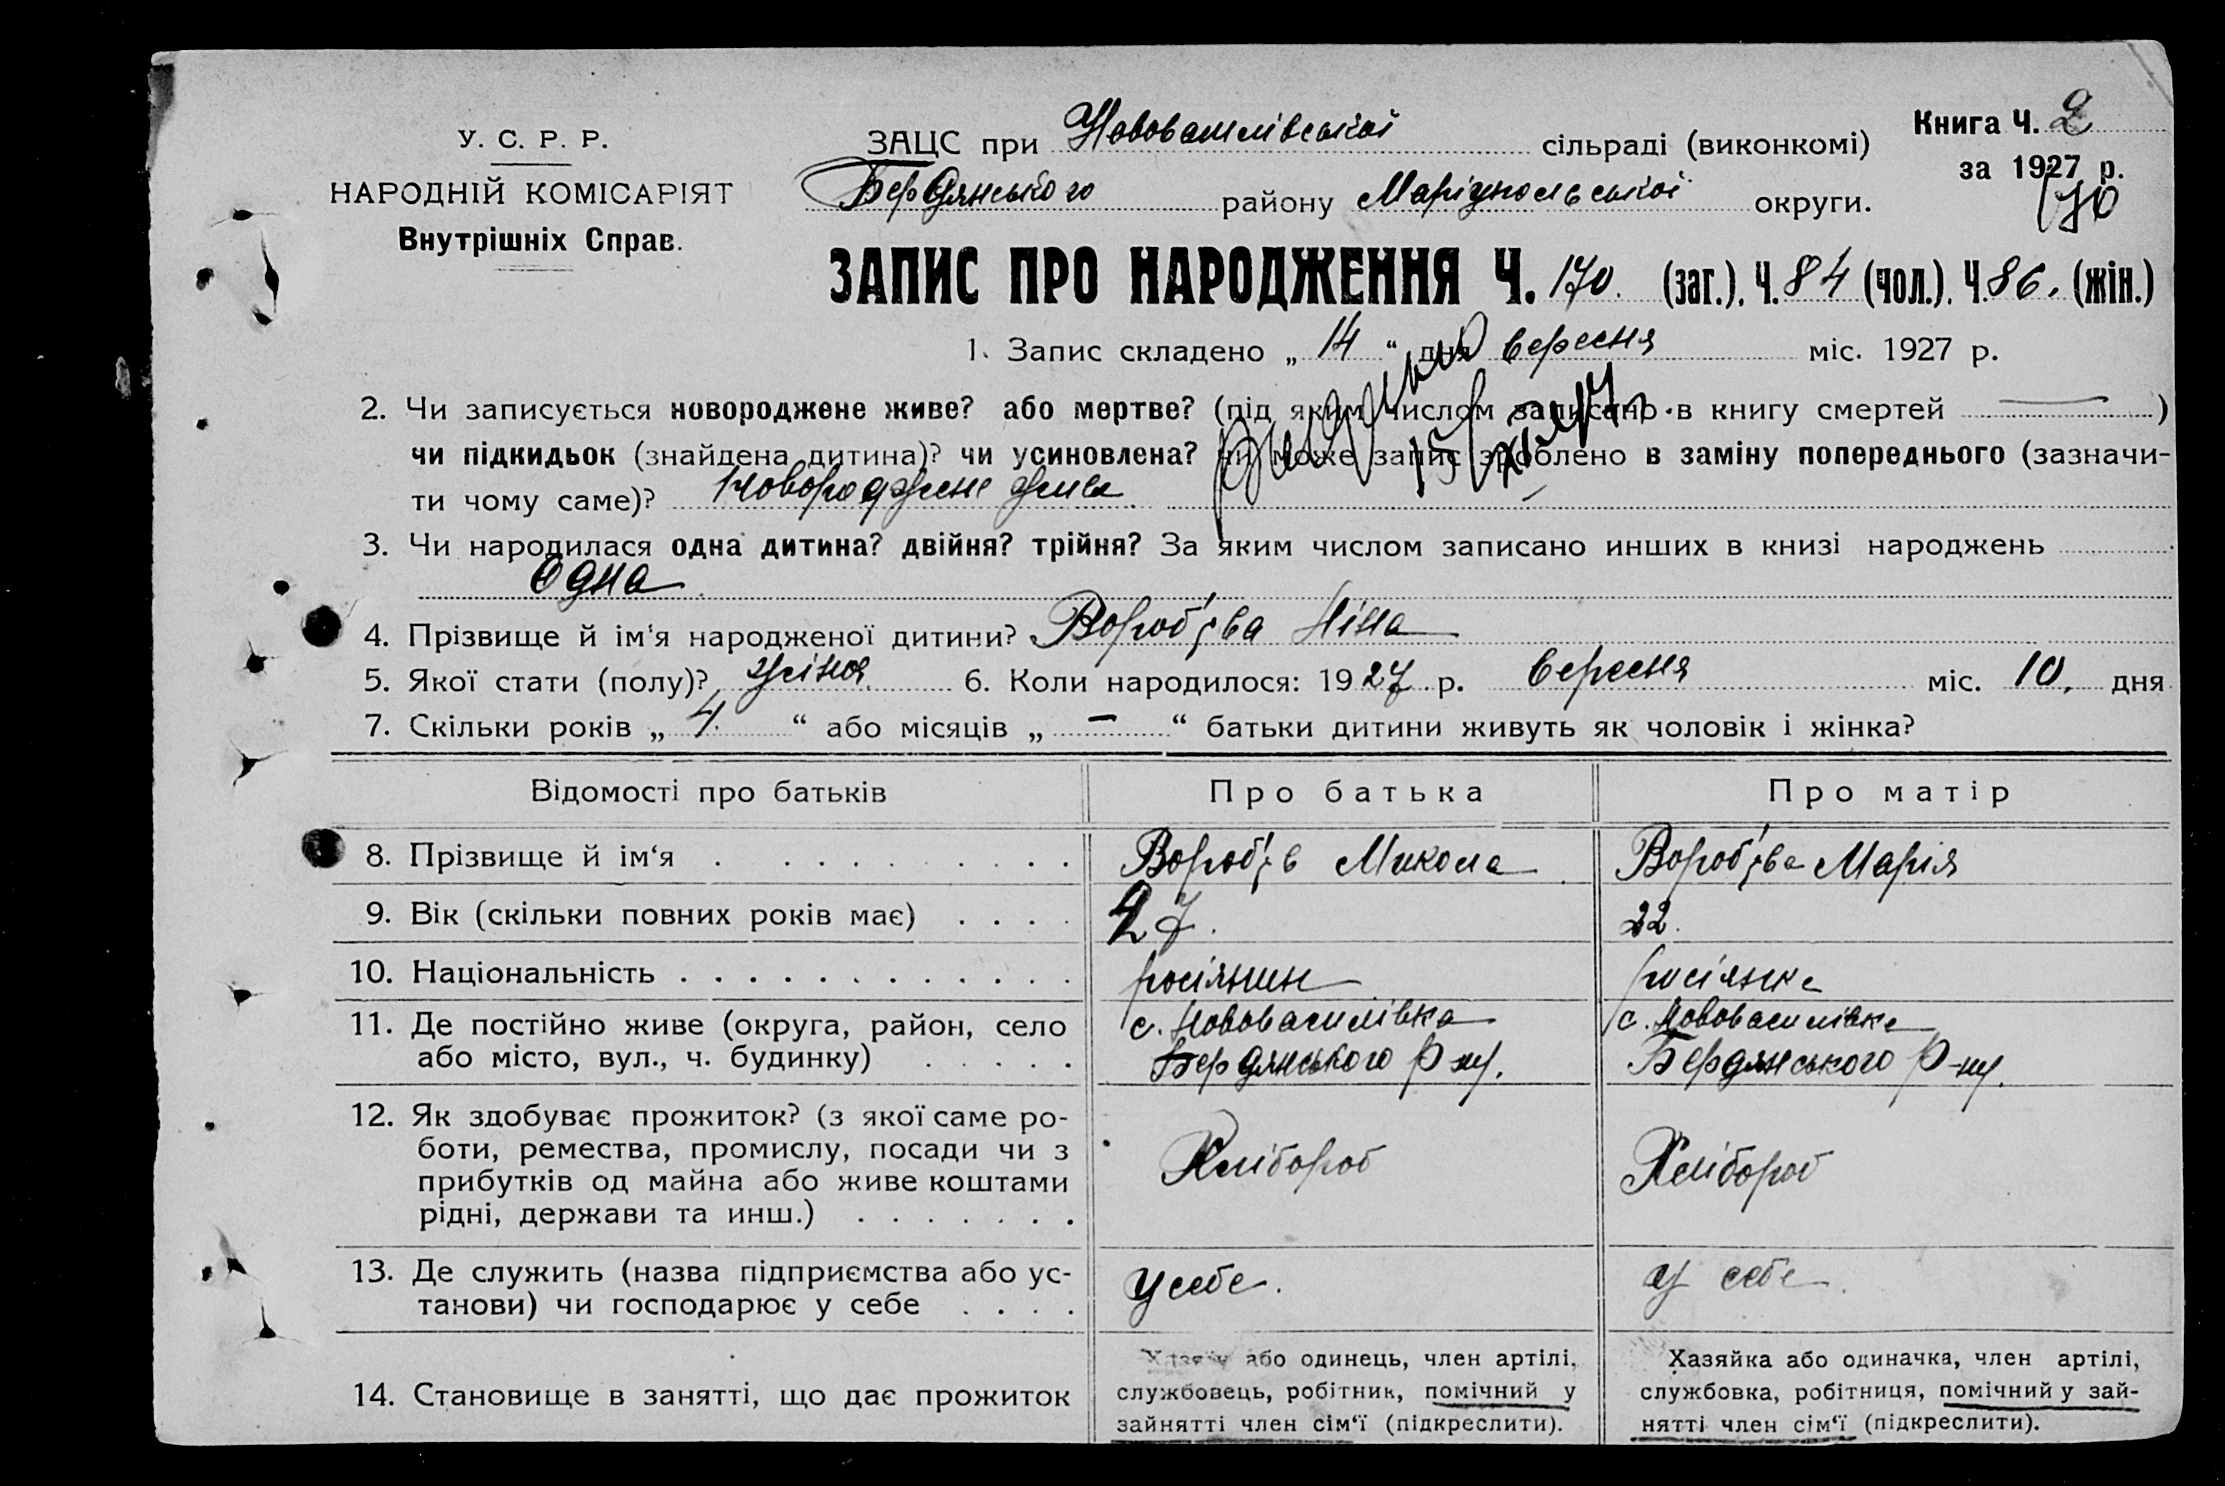 У. С. Р. Р.
НАРОДНІЙ КОМІСАРІЯТ
Внутрішніх Справ.
ЗАЦС при Нововасилівської сільраді (виконкомі)
Бердянського району Маріупольської округи.
Книга Ч. 2
за 1927 р.
170
ЗАПИС ПРО НАРОДЖЕННЯ Ч. 170. (заг.), Ч. 84 (чол.). Ч. 86. (жін.)
1. Запис складено „ 14 “ дня вересня міс. 1927 р.
2. Чи записується новороджене живе? або мертве? (під яким числом записано в книгу смертей —)
чи підкидьок (знайдена дитина)? чи усиновлена? чи може запис зроблено в заміну попереднього (зазначи-
ти чому саме)? Новороджене живе.
3. Чи народилася одна дитина? двійня? трійня? За яким числом записано инших в книзі народжень
Одна.
4. Прізвище й ім'я народженої дитини? Вороб'єва Ніна
5. Якої стати (полу)? жіноч. 6. Коли народилося: 1927 р. вересня міс. 10. дня
7. Скільки років „ 4. “ або місяців „ — “ батьки дитини живуть як чоловік і жінка?
Відомості про батьків Про батька Про матір
8. Прізвище й ім‘я . . . . . . . . . . Вороб'єв Микола Вороб'єва Марія
9. Вік (скільки повних років має) . . . . 27. 22.
10. Національність . . . . . . . . . . . . росіянин росіянка
11. Де постійно живе (округа, район, село с. Нововасилівка с. Нововасилівка
або місто, вул., ч. будинку) . . . . . Бердянського р-ну. Бердянського р-ну.
12. Як здобуває прожиток? (з якої саме ро-
боти, ремества, промислу, посади чи з Хлібороб Хлібороб
прибутків од майна або живе коштами
рідні, держави та инш.) . . . . . . .
13. Де служить (назва підприємства або ус- у себе. у себе.
танови) чи господарює у себе . . . .
Хазяїн або одинець, член артілі, Хазяйка або одиначка, член артілі,
14. Становище в занятті, що дає прожиток службовець, робітник, помічний у службовка, робітниця, помічний у зай-
зайнятті член сім‘ї (підкреслити). нятті член сім‘ї (підкреслити).